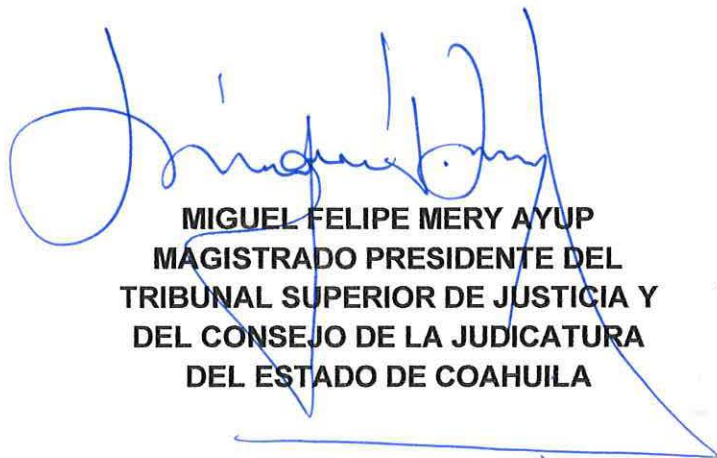 MIGUEL FELIPE MERY AYUP
MAGISTRADO PRESIDENTE DEL
TRIBUNAL SUPERIOR DE JUSTICIA Y
DEL CONSEJO DE LA JUDICATURA
DEL ESTADO DE COAHUILA